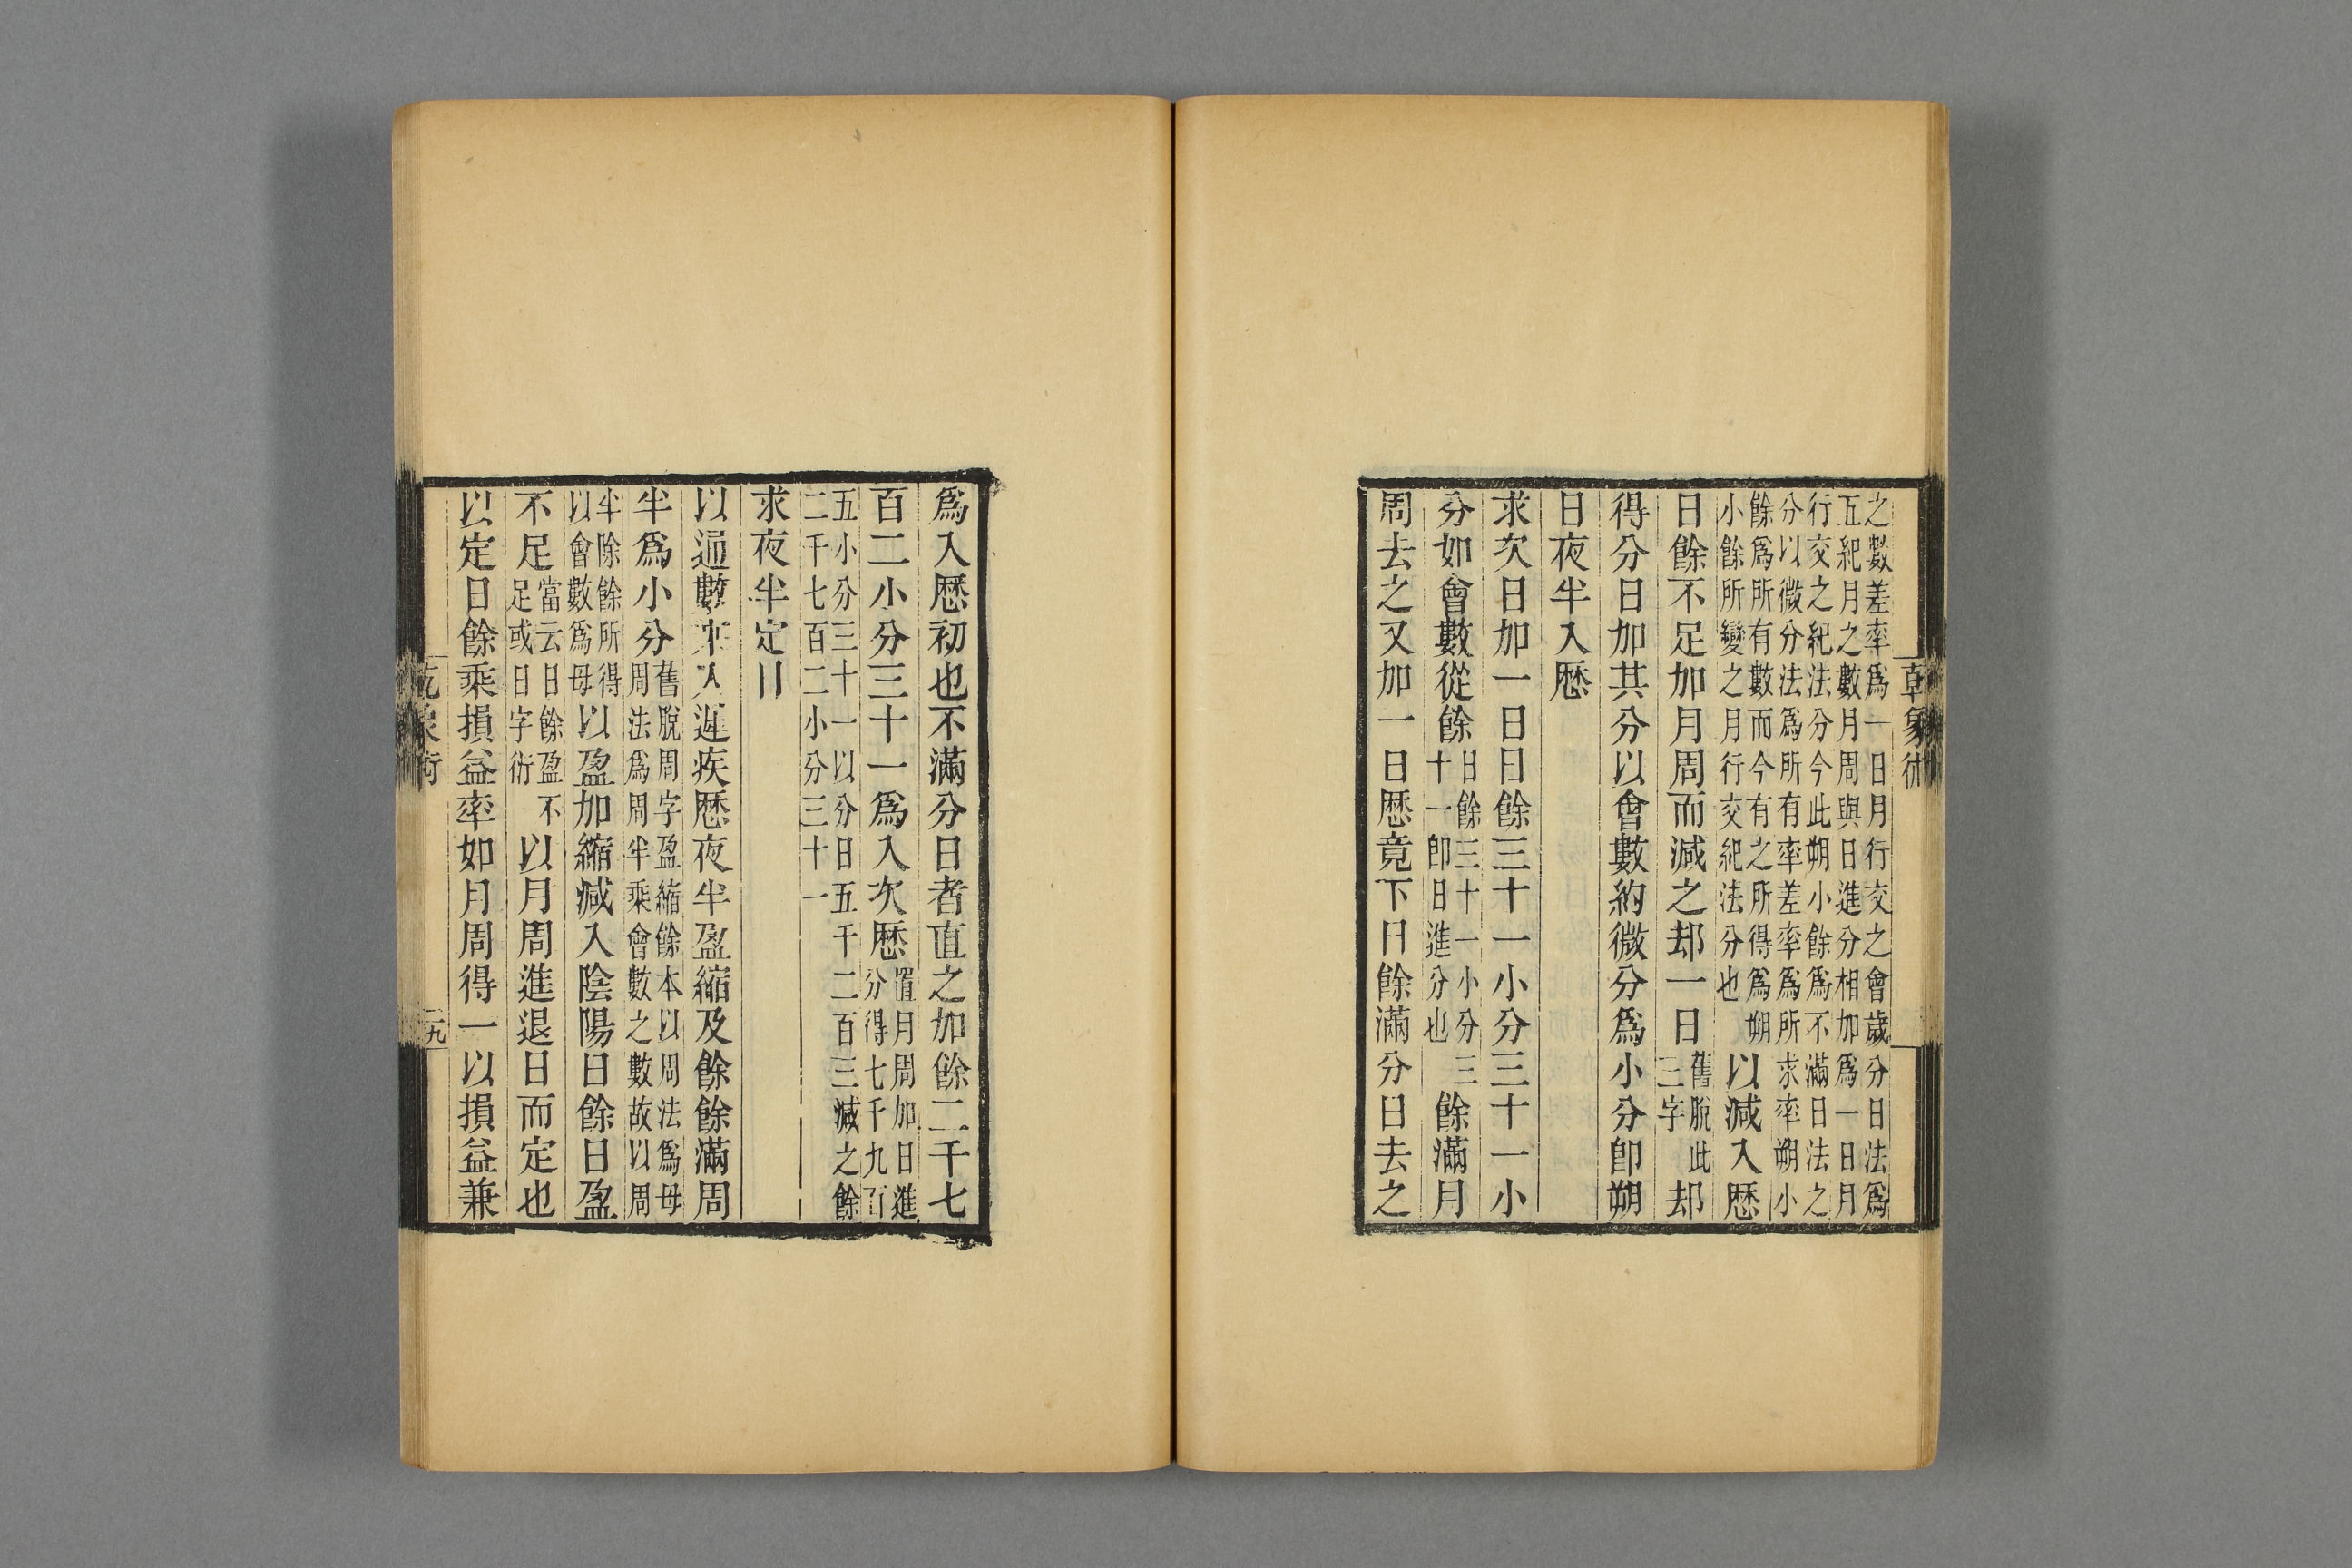 乾象術
之數差率爲一日月行交之會歲分日法爲
五紀月之數月周與日進分相加爲一日月
行交之紀法分今此朔小餘爲不滿日法之
分以微分法爲所有率差率爲所求率朔小
餘爲所有數而今有之所得爲朔
小餘所變之月行交紀法分也
以減入歷
日餘不足加月周而減之却一日
舊脫此
三字
却
得分日加其分以會數約微分爲小分卽朔
日夜半入歷
求次日加一日日餘三十一小分三十一小
分如會數從餘
日餘三十一小分三
十一卽日進分也
餘滿月
周去之又加一日歷竟下日餘滿分日去之
爲入歷初也不滿分日者直之加餘二千七
百二小分三十一爲入次歷
置月周加日進
分得七千九百
五小分三十一以分日五千二百三減之餘
二千七百二小分三十一
求夜半定日
以通數乘入遲疾歷夜半盈縮及餘餘滿周
半爲小分
舊脫周字盈縮餘本以周法爲母
周法爲周半乘會數之數故以周
半除餘所得
以會數爲母
以盈加縮減入陰陽日餘日盈
不足
當云日餘盈不
足或日字衍
以月周進退日而定也
以定日餘乘損益率如月周得一以損益兼
乾象術
二九